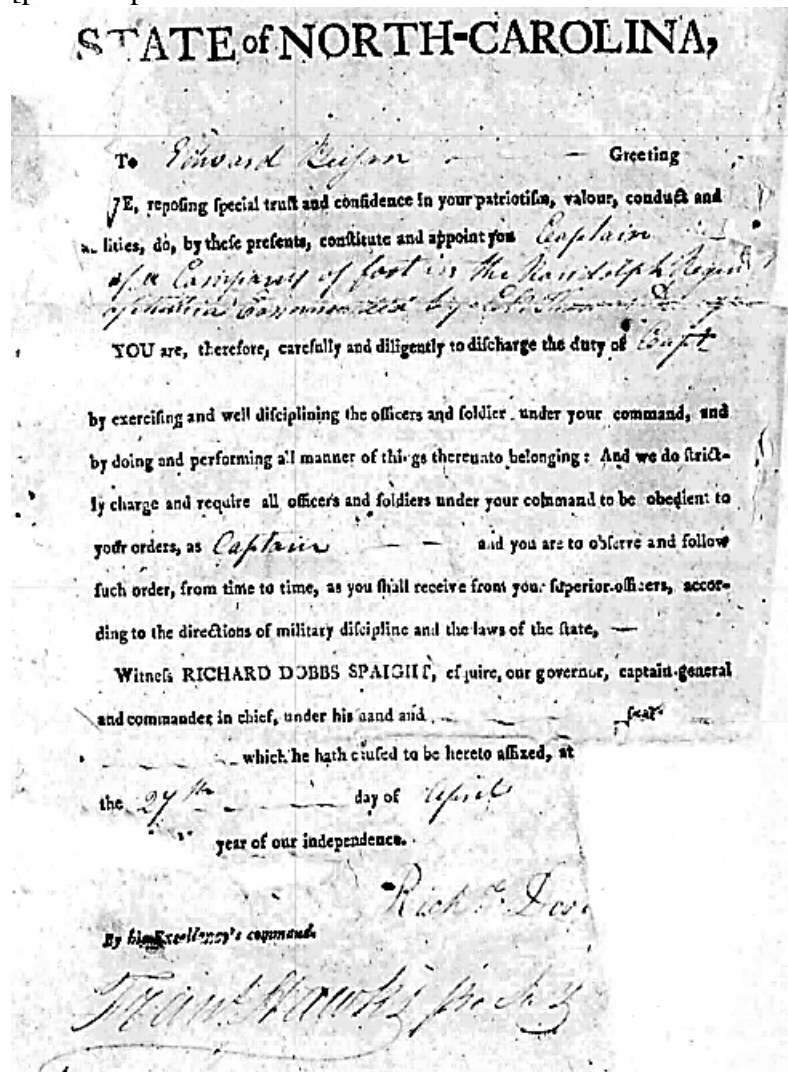 STATE of NORTH-CAROLINA,
To Edward Greeting
E, reposing special trust and confidence in your patriotism, valour, conduct and
lities, do, by these presents, constitute and appoint you Captain
of a Company of foot in the Randolph Regim
of militia Commanded by
YOU are, therefore, carefully and diligently to discharge the duty of Capt
by exercising and well disciplining the officers and soldier under your command, and
by doing and performing all manner of things thereunto belonging: And we do strict-
ly charge and require all officers and soldiers under your command to be obedient to
your orders, as Captain and you are to observe and follow
such order, from time to time, as you shall receive from your superior officers, accor-
ding to the directions of military discipline and the laws of the state,
Witness RICHARD DOBBS SPAIGHT, esquire, our governor, captain-general
and commander in chief, under his hand and seal
which he hath caused to be hereto affixed, at
the 27th day of April
year of our independence.
Rich D
By his Excellency's command.
Hawks